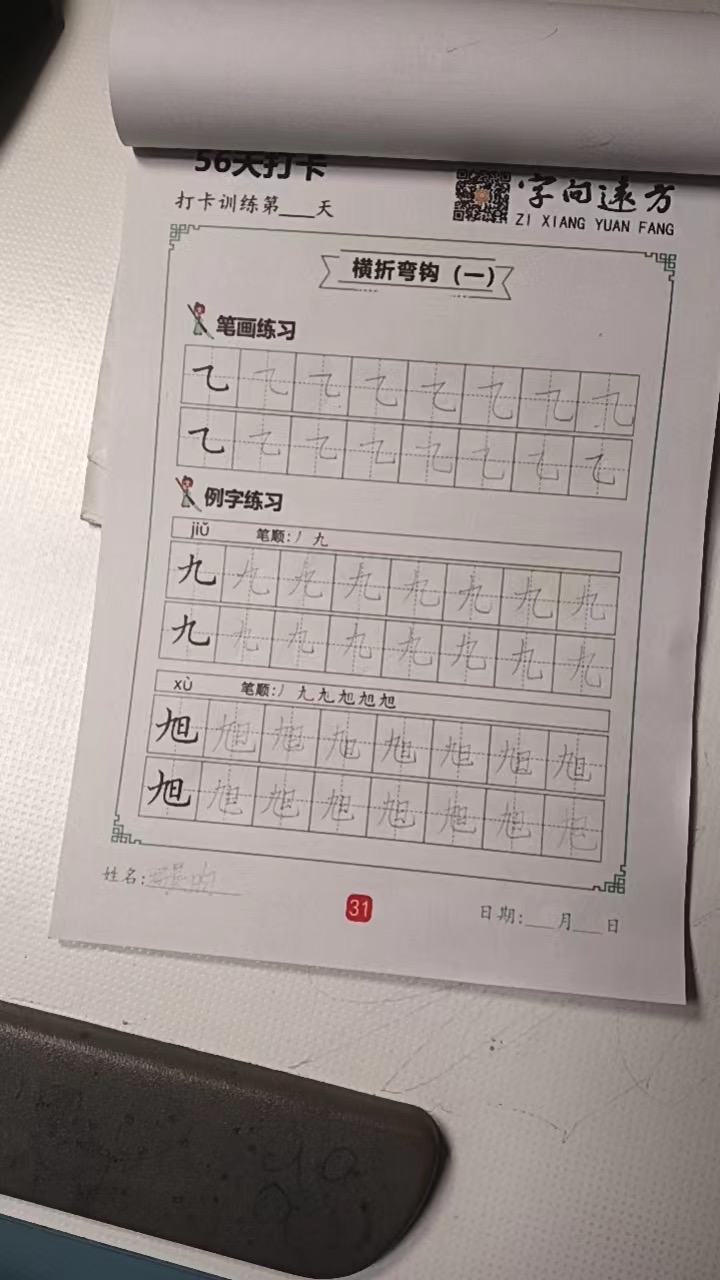 56天打卡
打卡训练第___天
字向远方
ZI XIANG YUAN FANG
横折弯钩（一）
笔画练习
㇈ ㇈ ㇈ ㇈ ㇈ ㇈ ㇈ ㇈
㇈ ㇈ ㇈ ㇈ ㇈ ㇈ ㇈ ㇈
例字练习
jiǔ 笔顺:丿 九
九 九 九 九 九 九 九 九
九 九 九 九 九 九 九 九
xù 笔顺:丿 九 旭 旭 旭 旭
旭 旭 旭 旭 旭 旭 旭 旭
旭 旭 旭 旭 旭 旭 旭 旭
姓名:
31
日期:___月___日